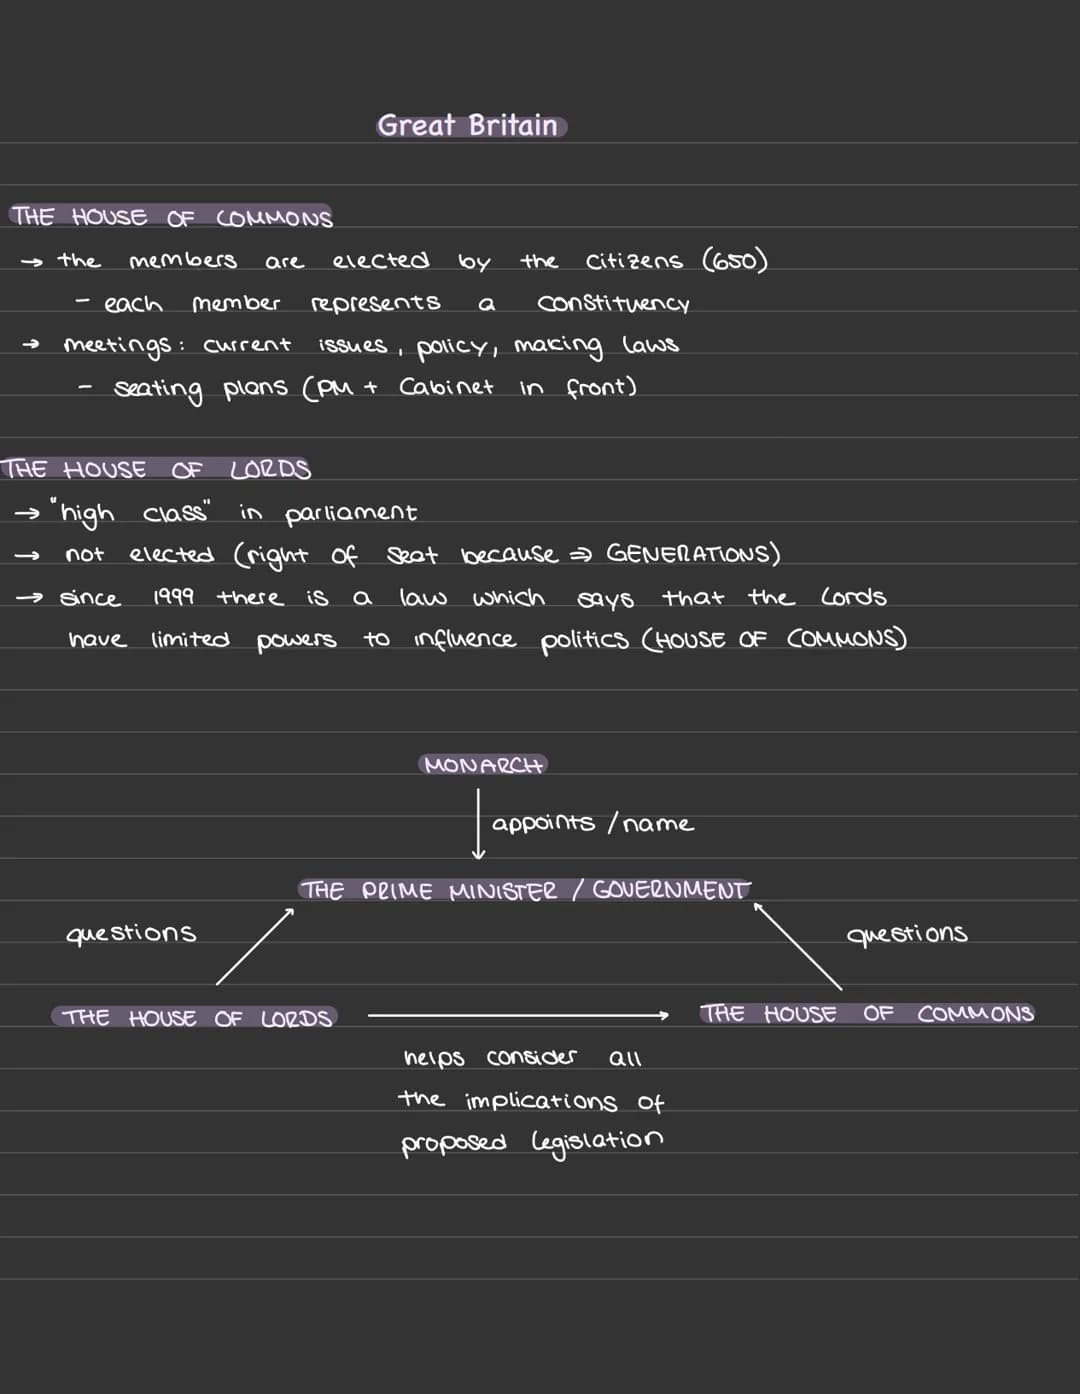 Great Britain
THE HOUSE OF COMMONS
→ the members are elected by the citizens (650)
- each member represents a constituency
→ meetings: current issues, policy, making laws
- seating plans (PM + Cabinet in front)
THE HOUSE OF LORDS
→ "high class" in parliament
→ not elected (right of seat because ⇒ GENERATIONS)
→ since 1999 there is a law which says that the Lords
have limited powers to influence politics (HOUSE OF COMMONS)
MONARCH
appoints / name
THE PRIME MINISTER / GOVERNMENT
questions
questions
THE HOUSE OF LORDS
THE HOUSE OF COMMONS
helps consider all
the implications of
proposed legislation